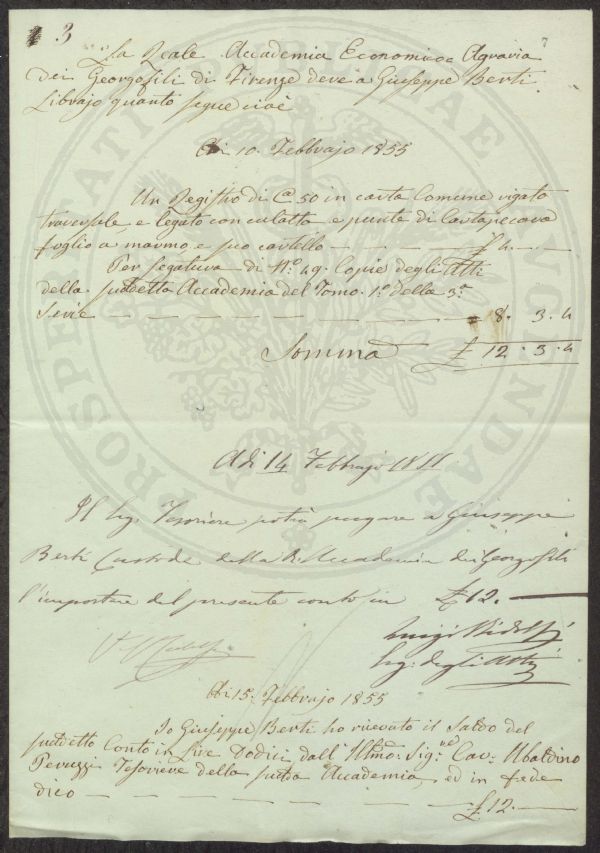 3
7
La Reale Accademia Economico Agraria
dei Georgofili di Firenze deve a Giuseppe Berti
Librajo quanto segue cioè
Adi 10. Febbrajo 1855
Un Registro di Ca 50 in carta Comune rigato
traversale e legato con culatta e punte di Cartapecora
foglio a marmo e suo cartello — — — — £ 4. — —
Per segatura di No. 49. Copie degli Atti
della suddetta Accademia del Tomo. 1o. della 3a.
Serie — — — — — — — — — 8. 3. 4
Somma £ 12. 3. 4
Adi 14 Febbrajo 1855
Il Sig. Tesoriere potrà pagare a Giuseppe
Berti Custode della R. Accademia dei Georgofili
l'importare del presente conto in £ 12. —
Luigi Ridolfi
Seg. degli Atti
Adi 15. Febbrajo 1855
Io Giuseppe Berti ho ricevuto il Saldo del
suddetto Conto in Lire Dodici dall' Illmo: Sig.re Cav: Ubaldino
Peruzzi Tesoriere della sudta Accademia, ed in fede
dico — — — — — — — £ 12. —
PROSPERITATI PUBLICAE AUGENDAE